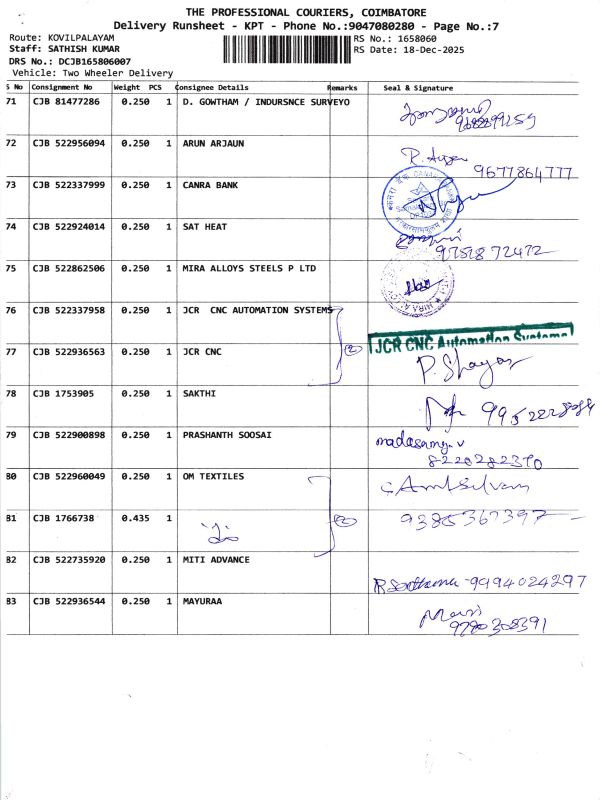 THE PROFESSIONAL COURIERS, COIMBATORE
Delivery Runsheet - KPT - Phone No.:9047080280 - Page No.:7
Route: KOVILPALAYAM RS No.: 1658060
Staff: SATHISH KUMAR RS Date: 18-Dec-2025
DRS No.: DCJB165806007
Vehicle: Two Wheeler Delivery
S No Consignment No Weight PCS Consignee Details Remarks Seal & Signature
71 CJB 81477286 0.250 1 D. GOWTHAM / INDURSNCE SURVEYO
72 CJB 522956094 0.250 1 ARUN ARJAUN
9677864777
73 CJB 522337999 0.250 1 CANRA BANK
74 CJB 522924014 0.250 1 SAT HEAT
9751872472
75 CJB 522862506 0.250 1 MIRA ALLOYS STEELS P LTD
76 CJB 522337958 0.250 1 JCR CNC AUTOMATION SYSTEMS
JCR CNC Automation Systems
77 CJB 522936563 0.250 1 JCR CNC
78 CJB 1753905 0.250 1 SAKTHI
79 CJB 522900898 0.250 1 PRASHANTH SOOSAI madasamy.v
8220282370
80 CJB 522960049 0.250 1 OM TEXTILES
81 CJB 1766738 0.435 1 9385367397
82 CJB 522735920 0.250 1 MITI ADVANCE
9994024297
83 CJB 522936544 0.250 1 MAYURAA